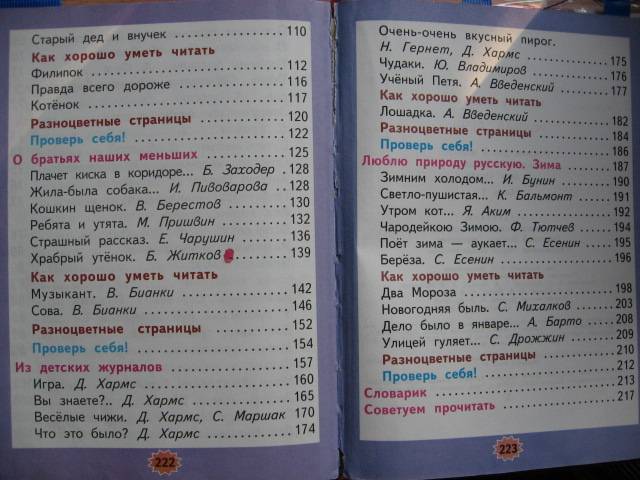 Старый дед и внучек .................... 110
Как хорошо уметь читать
Филипок .................... 112
Правда всего дороже .................... 116
Котёнок .................... 117
Разноцветные страницы .................... 120
Проверь себя! .................... 122
О братьях наших меньших .................... 125
Плачет киска в коридоре... Б. Заходер . 128
Жила-была собака... И. Пивоварова .. 128
Кошкин щенок. В. Берестов .......... 130
Ребята и утята. М. Пришвин .......... 132
Страшный рассказ. Е. Чарушин ....... 136
Храбрый утёнок. Б. Житков .......... 139
Как хорошо уметь читать
Музыкант. В. Бианки .................... 142
Сова. В. Бианки .................... 146
Разноцветные страницы .................... 152
Проверь себя! .................... 154
Из детских журналов .................... 157
Игра. Д. Хармс .................... 160
Вы знаете?.. Д. Хармс .................... 165
Весёлые чижи. Д. Хармс, С. Маршак 170
Что это было? Д. Хармс .................... 174
222
Очень-очень вкусный пирог.
Н. Гернет, Д. Хармс .................... 175
Чудаки. Ю. Владимиров .................... 176
Учёный Петя. А. Введенский .......... 177
Как хорошо уметь читать
Лошадка. А. Введенский .................... 182
Разноцветные страницы .................... 184
Проверь себя! .................... 186
Люблю природу русскую. Зима .......... 187
Зимним холодом... И. Бунин .......... 190
Светло-пушистая... К. Бальмонт ....... 191
Утром кот... Я. Аким .................... 192
Чародейкою Зимою. Ф. Тютчев ....... 194
Поёт зима — аукает... С. Есенин ..... 195
Берёза. С. Есенин .................... 196
Как хорошо уметь читать
Два Мороза .................... 198
Новогодняя быль. С. Михалков ....... 203
Дело было в январе... А. Барто ....... 208
Улицей гуляет... С. Дрожжин .......... 209
Разноцветные страницы .................... 210
Проверь себя! .................... 212
Словарик .................... 213
Советуем прочитать .................... 217
223